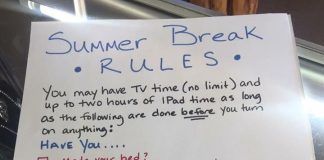 SUMMER BREAK
• RULES •
You may have TV time (no limit) and
up to two hours of IPad time as long
as the following are done before you turn
on anything:
HAVE YOU....
Made your bed?